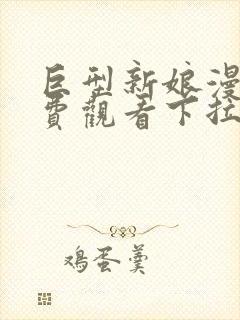 巨型新娘漫
費觀看下拉
鸡蛋羹